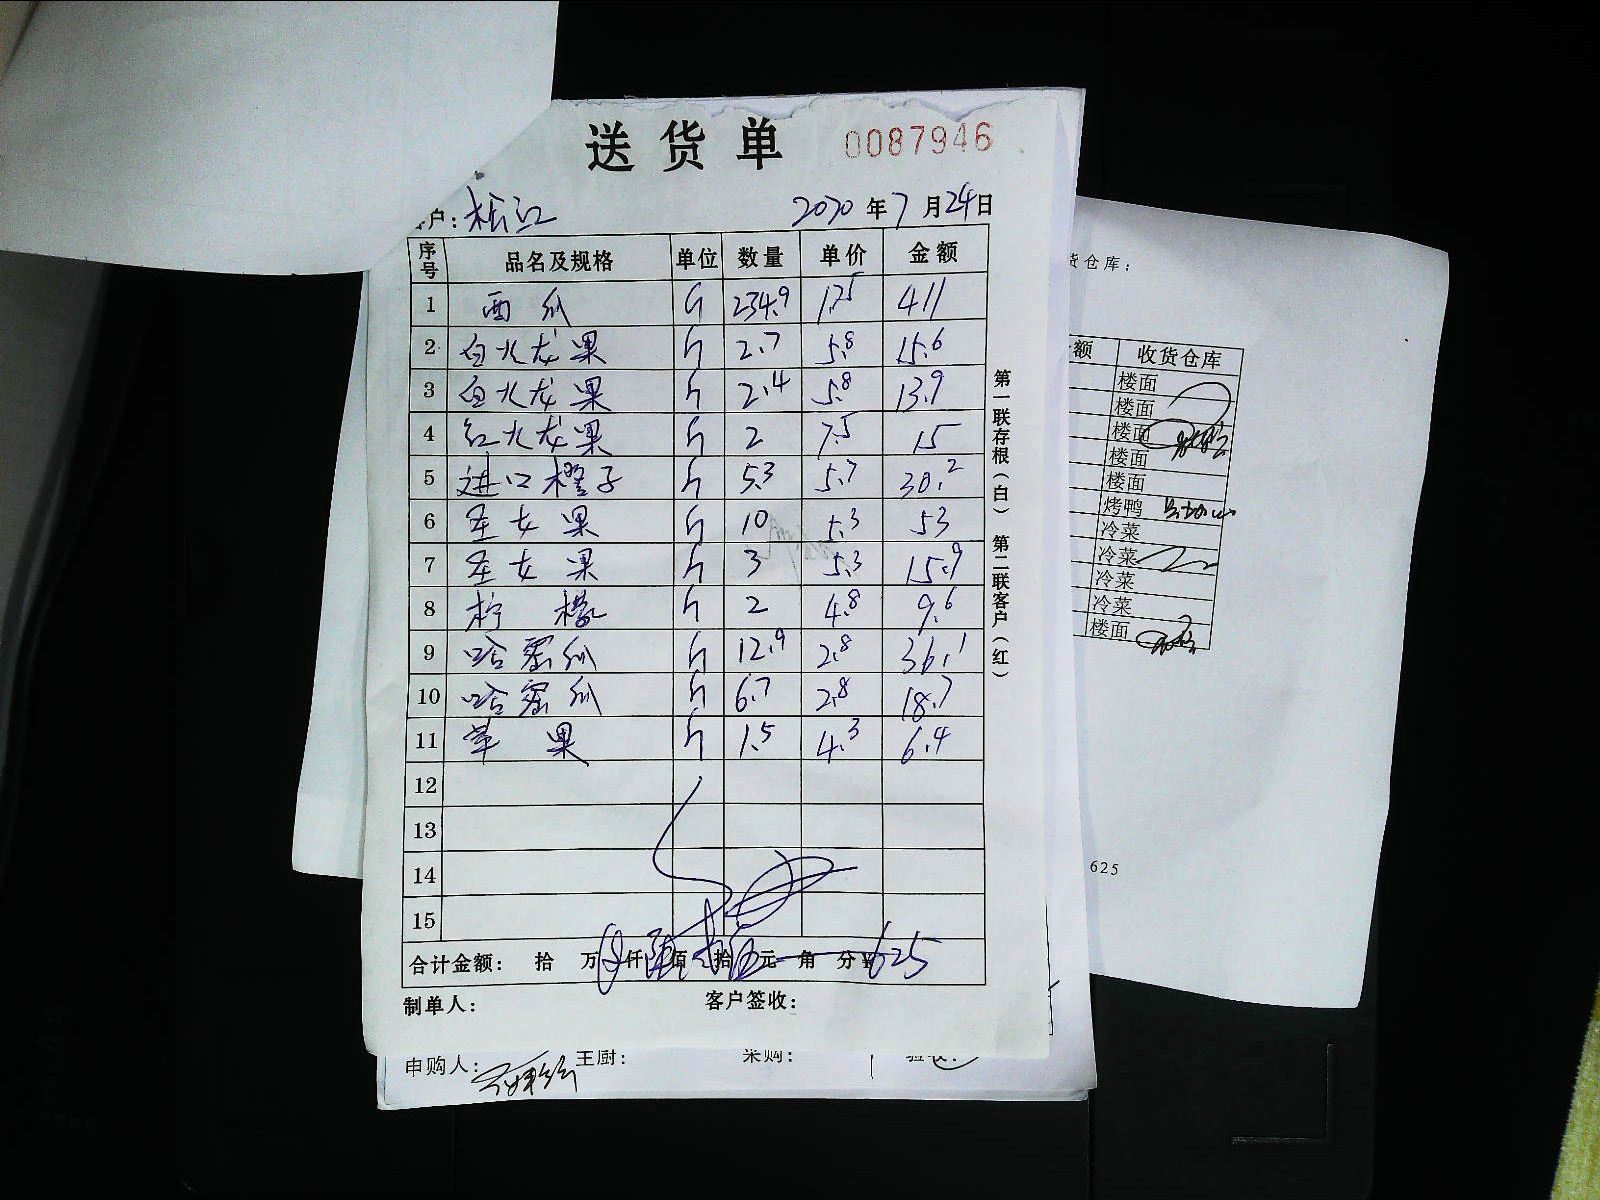 送货单 0087946
户: 松江 2020年7月24日
序号 品名及规格 单位 数量 单价 金额
1 西瓜 斤 234.9 1.75 411
2 白火龙果 斤 2.7 5.8 15.6
3 白火龙果 斤 2.4 5.8 13.9
4 红火龙果 斤 2 7.5 15
5 进口橙子 斤 5.3 5.7 30.2
6 圣女果 斤 10 5.3 53
7 圣女果 斤 3 5.3 15.9
8 柠檬 斤 2 4.8 9.6
9 哈密瓜 斤 12.9 2.8 36.1
10 哈密瓜 斤 6.7 2.8 18.7
11 苹果 斤 1.5 4.3 6.4
12
13
14
15
合计金额: 拾 万 仟 陆 佰 拾 伍 元 角 分 ¥625
制单人: 客户签收:
第一联存根(白) 第二联客户(红)
申购人: 王厨: 采购: 验收:
货仓库:
额 收货仓库
楼面
楼面
楼面
楼面
楼面
烤鸭
冷菜
冷菜
冷菜
冷菜
楼面
625